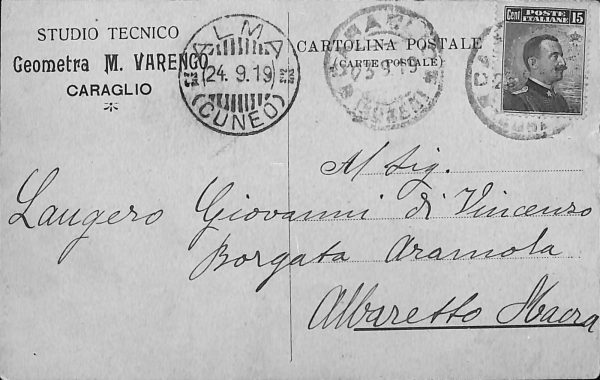 STUDIO TECNICO
Geometra M. VARENGO
CARAGLIO
ALMA
24.9.19
(CUNEO)
CARTOLINA POSTALE
(CARTE POSTALE)
Cent POSTE ITALIANE 15
Al Sig.
Laugero Giovanni di Vincenzo
Borgata Aramola
Albaretto Macra